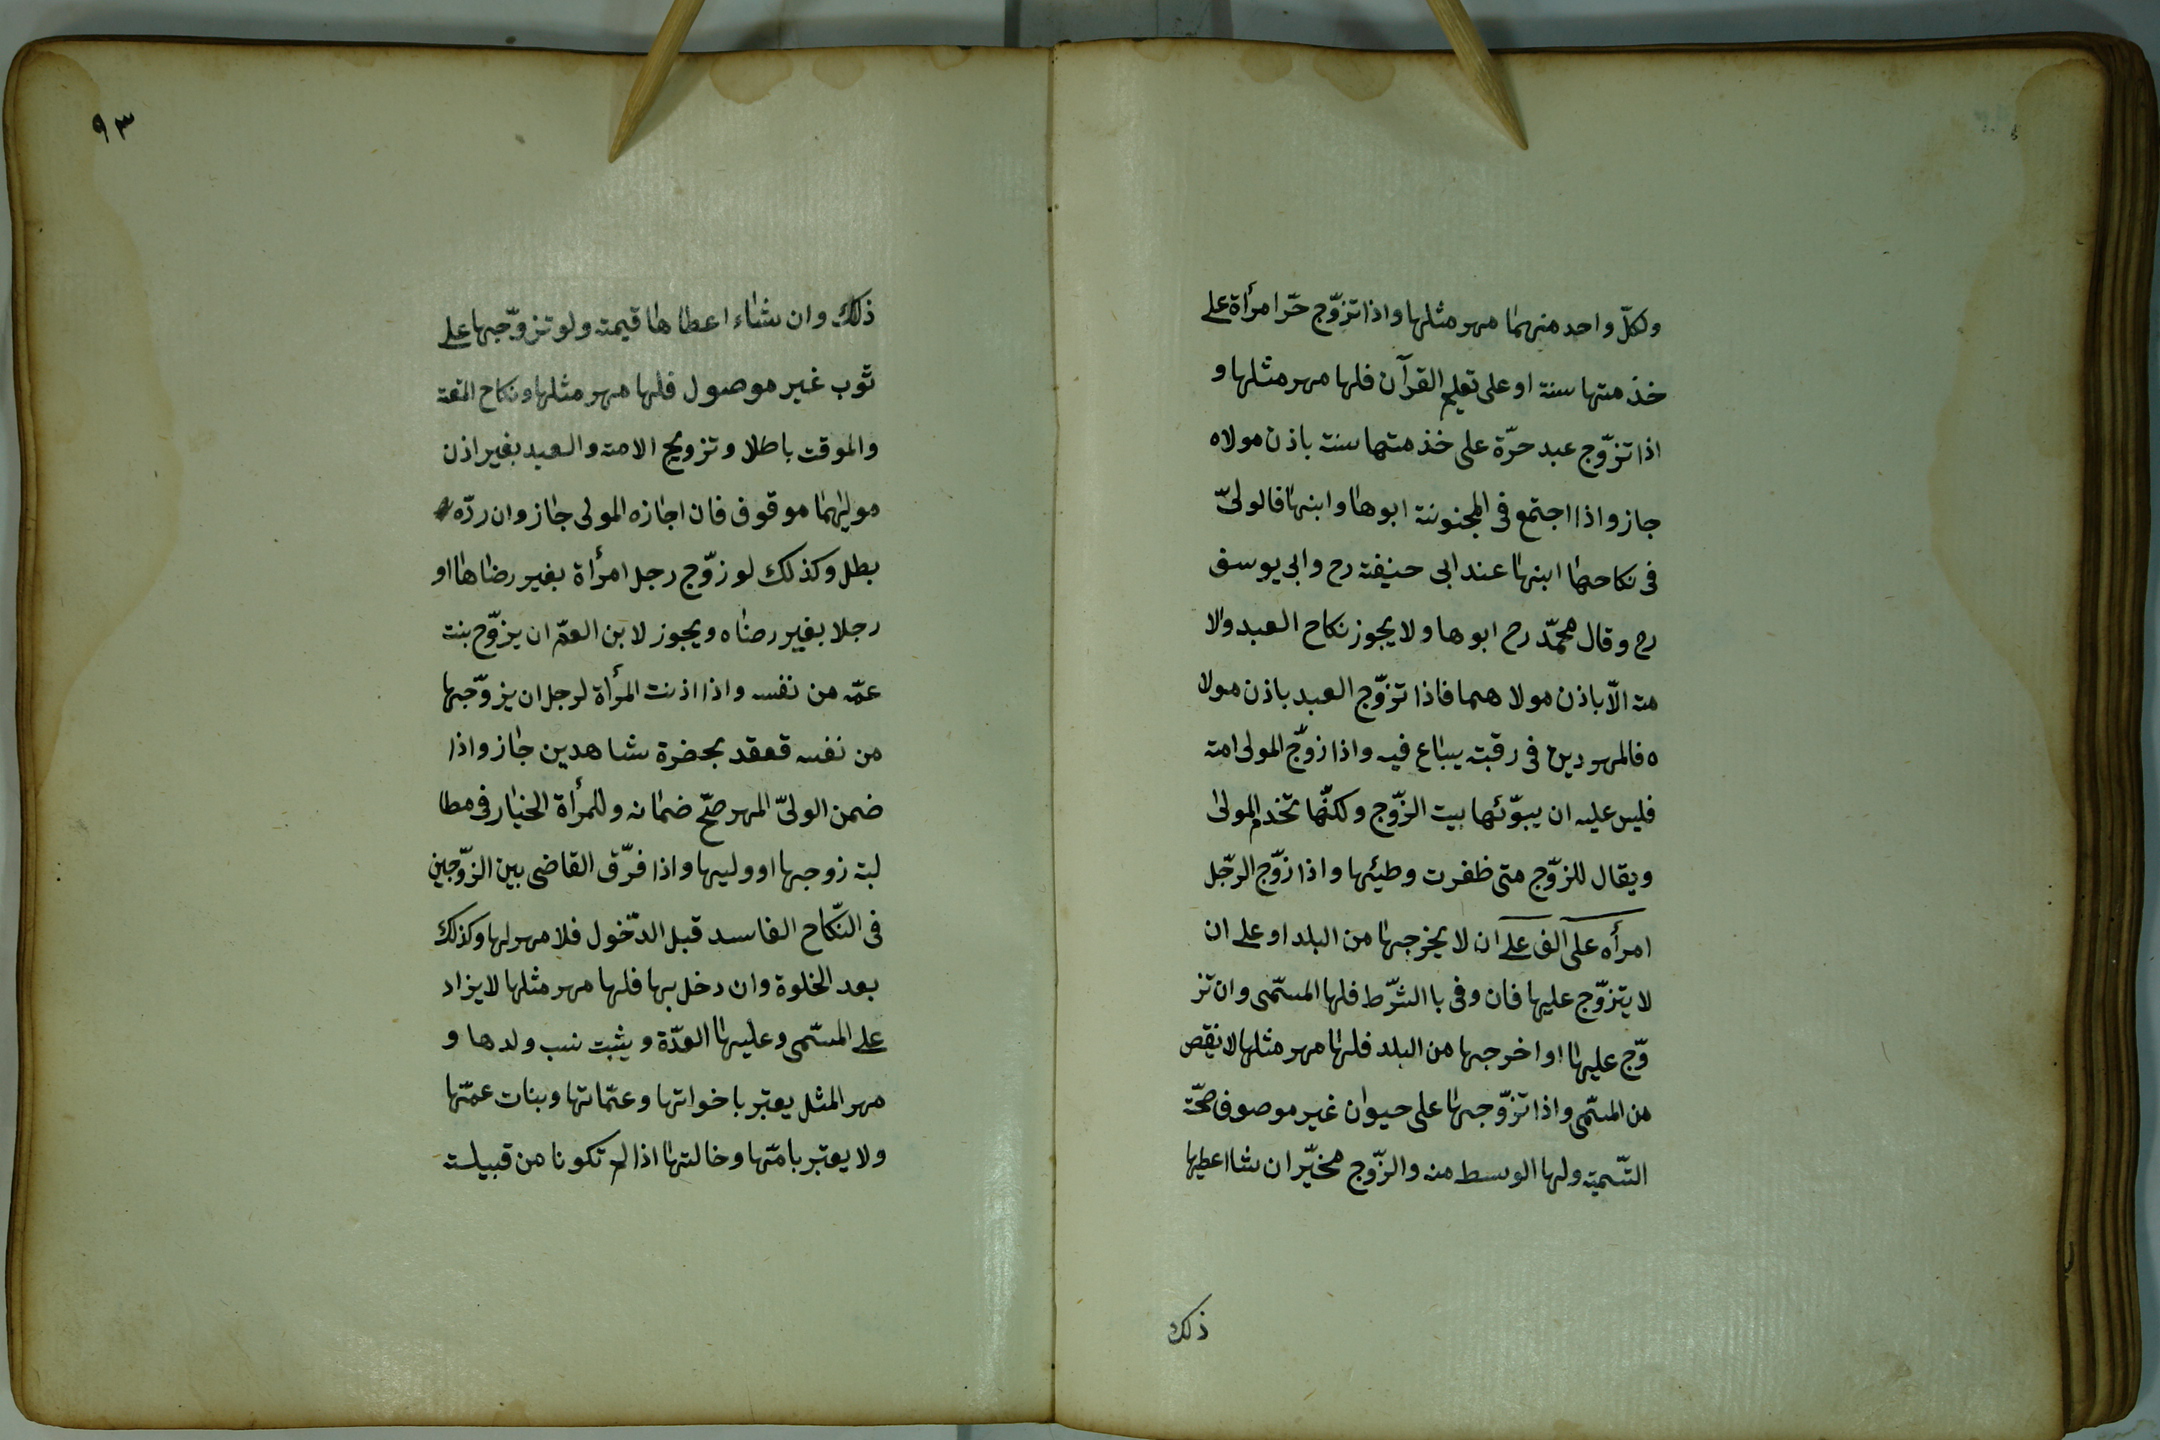 ولكلّ واحد منهما مهر مثلها واذا تزوّج حّرا مرأة على
خذ متها سنة او على تعليم القرآن فلها مهر مثلها و
اذا تزوّج عبد حرّة على خذ متها سنة باذن مولاه
جاز واذا اجتمع فى المجنونة ابوها وابنها فالولىّ
فى نكاحها ابنها عند ابى حنيفة رح وابى يوسف
رح وقال محمّد رح ابوها ولا يجوز نكاح العبد والا
مة الّا باذن مولا هما فاذا تزوّج العبد باذن مولا
ه فالمهر دين فى رقبته يباع فيه واذا زوّج المولى امته
فليس عليه ان يبوّئها بيت الزّوج ولكنّها تخدم المولى
ويقال للزّوج متى ظفرت وطيئها واذا زوّج الرّجل
امرأه على الف على ان لا يخرجها من البلد او على ان
لا يتزوّج عليها فان وفى با الشّرط فلها المسّمى وان تز
وّج عليها او اخرجها من البلد فلها مهر مثلها لا نقص
من المسّمى واذا تزوّجها على حيوان غير موصوف صحّة
التّسمية ولها الوسط منه والزّوج مخيّر ان شا اعطيها
ذلك
٩٣
ذلك وان شاء اعطاها قيمته ولو تزوّجها على
ثوب غير موصول فلها مهر مثلها ونكاح المتعة
والموقت باطلا وتزويج الامة والعبد بغير اذن
موليهما موقوف فان اجازه المولى جاز وان ردّه
بطل وكذلك لو زوّج رجل امرأة بغير رضاها او
رجلا بغير رضاه ويجوز لا بن العمّ ان يزوّج بنت
عمّه من نفسه واذا اذنت المرأة لرجل ان يزوّجها
من نفسه قعقد بحضرة شاهدين جاز واذا
ضمن الولىّ المهر صّح ضمانه وللمرأة الخيار فى مطا
لبة زوجها او وليها واذا فرّق القاضى بين الزّوجين
فى النّكاح الفاسد قبل الدّخول فلا مهر لها وكذلك
بعد الخلوة وان دخل بها فلها مهر مثلها لا يزاد
على المسّمى وعليها العدّة ويثبت نسب ولدها و
مهر المثل يعتبر باخواتها وعمّاتها وبنات عمّتها
ولا يعتبر بامّها وخالتها اذا لم تكونا من قبيلته